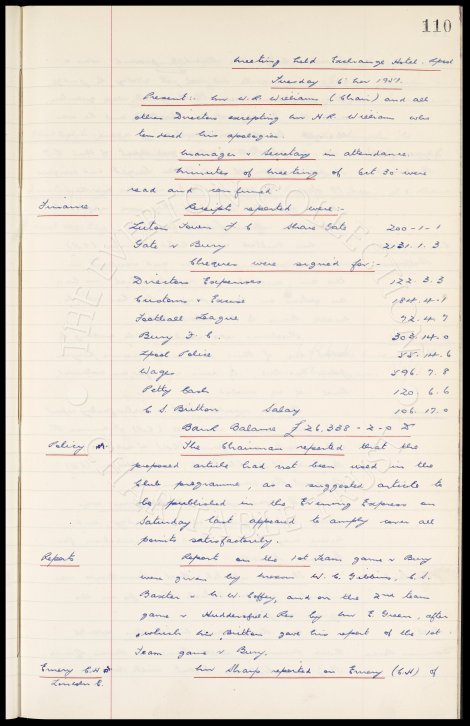 110
Meeting held Exchange Hotel. Lpool
Tuesday 6 Nov 1951.
Present:- Mr W.R. Williams (Chair) and all
other Directors excepting Mr H.R. William who
tendered his apologies.
Manager & Secretary in attendance.
Minutes of Meeting of Oct 30 were
read and confirmed
Finance. Receipts reported were:-
Luton Town F C Share Gate 200-1-1
Gate v Bury 2131.1.3
Cheques were signed for:-
Directors Expenses 122.3.3
Customs & Excise 184.4.9
Football League 72.4.7
Bury F.C. 303.14.0
Lpool Police 55.14.6
Wages 596.7.8
Petty Cash 120.6.6
C S Britton Salary 106.17.0
Bank Balance £26,338-2-0
Policy The Chairman reported that the
proposed article had not been used in the
Club programme, as a suggested article to
be published in the Evening Express on
Saturday last appeared to amply cover all
points satisfactorily.
Reports Report on the 1st Team game v Bury
were given by Messrs W.C. Gibbins, C.S.
Baxter & N.W. Coffey, and on the 2nd team
game v Huddersfield Res by Mr E Green, after
which Mr Britton gave his report of the 1st
Team game v Bury.
Emery C.H Mr Sharp reported on Emery (C.H) of
Lincoln C.
THE EVERTON COLLECTION